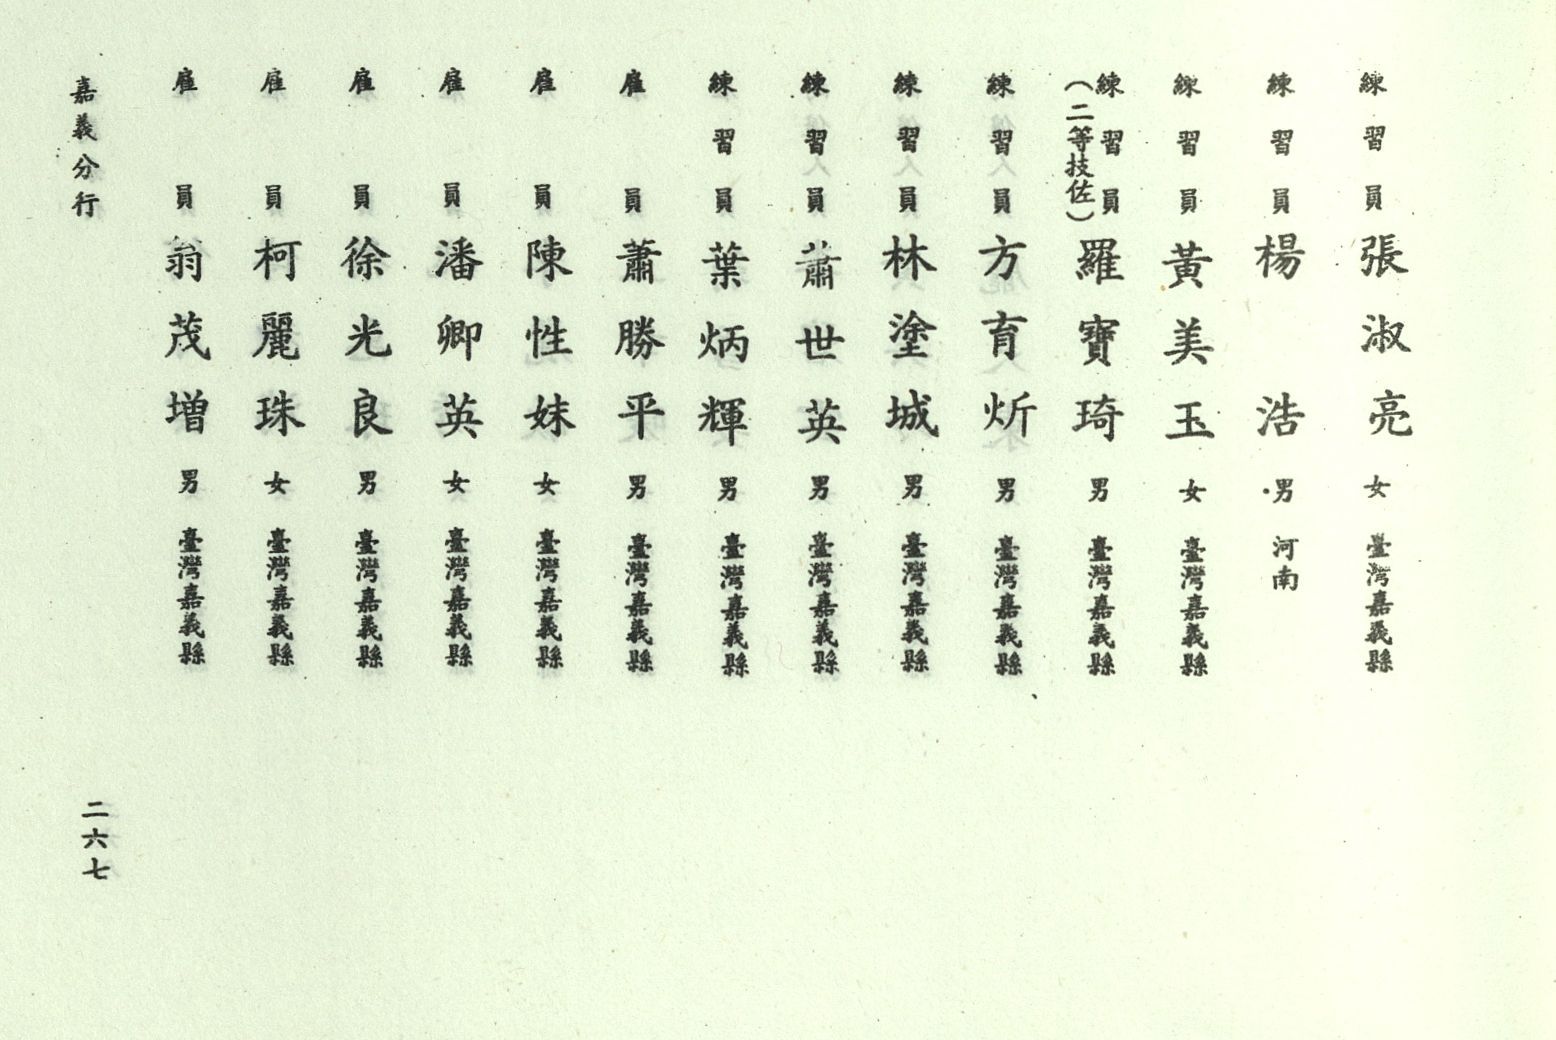 練習員 張淑亮 女 臺灣嘉義縣
練習員 楊浩 男 河南
練習員 黃美玉 女 臺灣嘉義縣
練習員(二等技佐) 羅寶琦 男 臺灣嘉義縣
練習員 方育炘 男 臺灣嘉義縣
練習員 林塗城 男 臺灣嘉義縣
練習員 蕭世英 男 臺灣嘉義縣
練習員 葉炳輝 男 臺灣嘉義縣
雇員 蕭勝平 男 臺灣嘉義縣
雇員 陳性妹 女 臺灣嘉義縣
雇員 潘卿英 女 臺灣嘉義縣
雇員 徐光良 男 臺灣嘉義縣
雇員 柯麗珠 女 臺灣嘉義縣
雇員 翁茂增 男 臺灣嘉義縣
嘉義分行
二六七